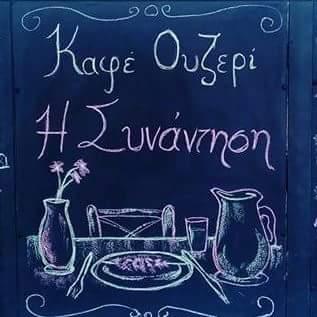 Καφέ Ουζερί
Η Συνάντηση